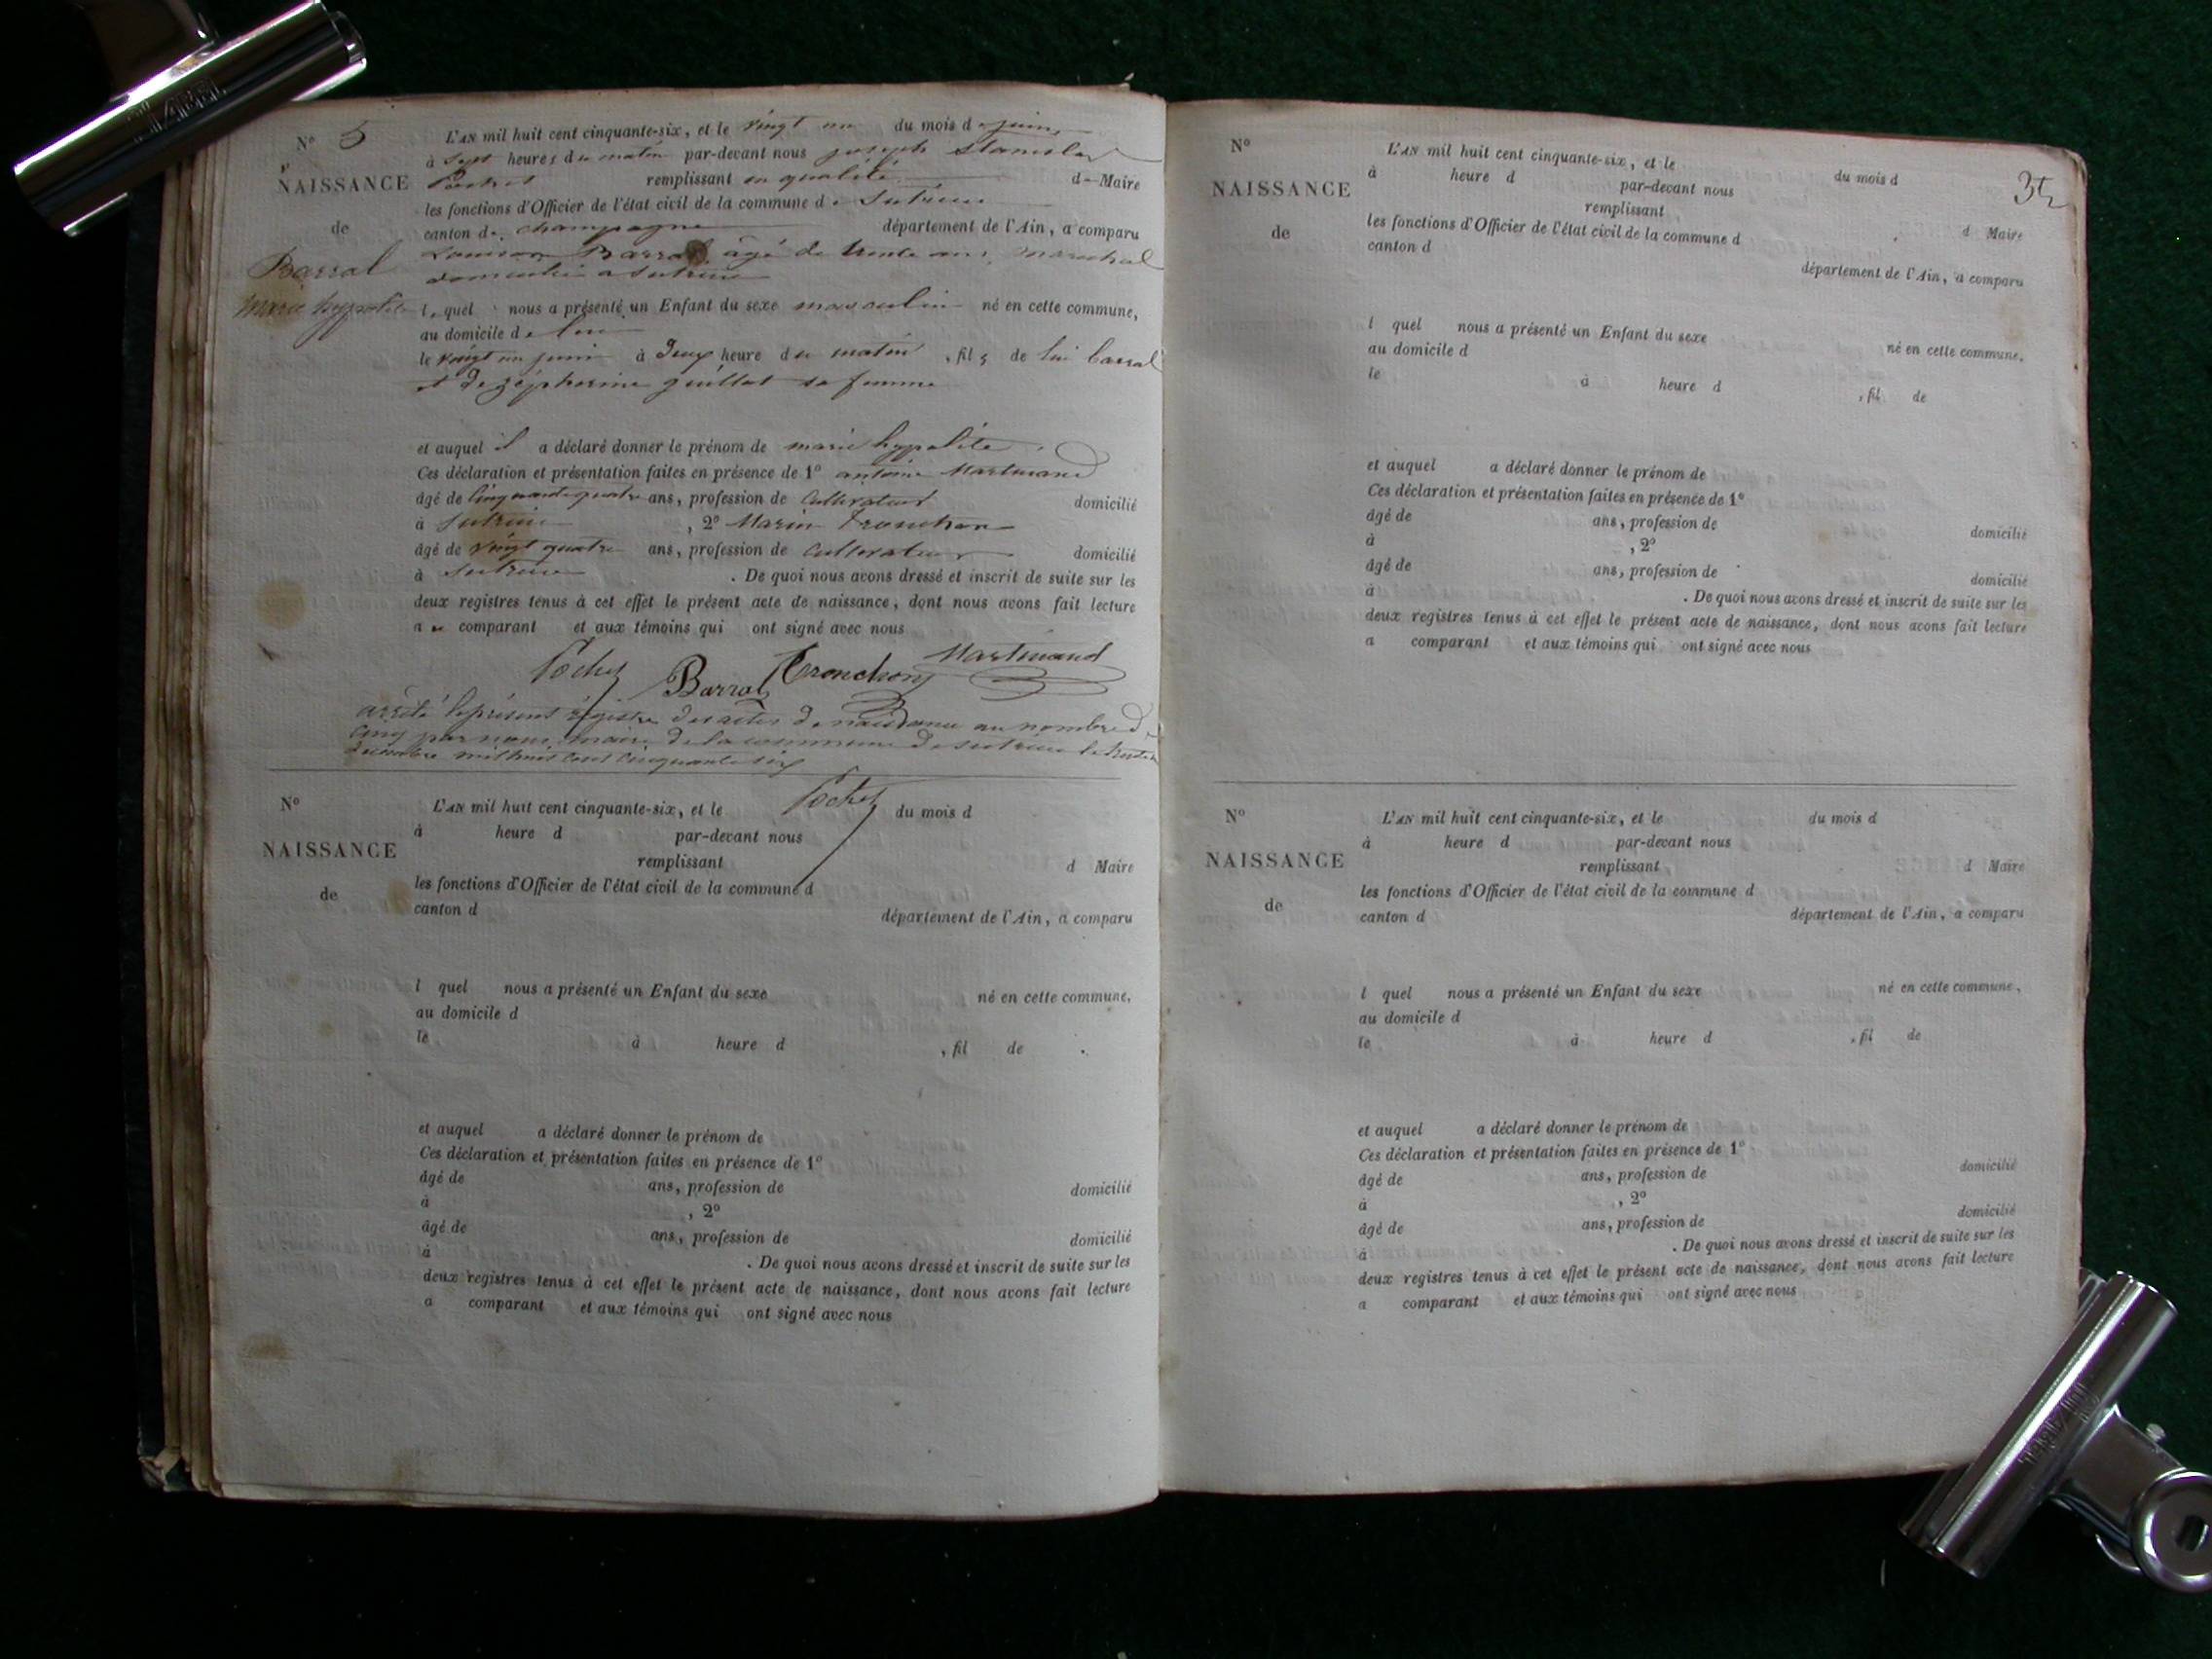 N° 5
NAISSANCE
de
Barral
marie hyppolite
L'AN mil huit cent cinquante-six, et le vingt un du mois de juin
à sept heures du matin par-devant nous joseph stanislas
Pochet remplissant en qualité de Maire
les fonctions d'Officier de l'état civil de la commune de Sutrieu
canton de champagne département de l'Ain, a comparu
Barral, âgé de trente ans, maréchal
domicilié a sutrieu
lequel nous a présenté un Enfant du sexe masculin né en cette commune,
au domicile de lui
le vingt un juin à deux heure du matin, fils de lui barral
et de zépherine guillot sa femme
et auquel il a déclaré donner le prénom de marie hyppolite.
Ces déclaration et présentation faites en présence de 1° antoine Martinand
âgé de cinquante quatre ans, profession de cultivateur domicilié
à Sutrieu, 2° Marin Tronchon
âgé de vingt quatre ans, profession de cultivateur domicilié
à Sutrieu. De quoi nous avons dressé et inscrit de suite sur les
deux registres tenus à cet effet le présent acte de naissance, dont nous avons fait lecture
au comparant et aux témoins qui ont signé avec nous
Pochet Barral Tronchon Martinand
arrêté le présent régistre des actes de naissance au nombre de
cinq par nous maire de la commune de sutrieu le trente un
décembre mil huit cent cinquante six
Pochet
N°
NAISSANCE
de
L'AN mil huit cent cinquante-six, et le du mois d
à heure d par-devant nous
remplissant d Maire
les fonctions d'Officier de l'état civil de la commune d
canton d département de l'Ain, a comparu
l quel nous a présenté un Enfant du sexe né en cette commune,
au domicile d
le à heure d , fil de
et auquel a déclaré donner le prénom de
Ces déclaration et présentation faites en présence de 1°
âgé de ans, profession de domicilié
à , 2°
âgé de ans, profession de domicilié
à . De quoi nous avons dressé et inscrit de suite sur les
deux registres tenus à cet effet le présent acte de naissance, dont nous avons fait lecture
a comparant et aux témoins qui ont signé avec nous
N°
NAISSANCE
de
L'AN mil huit cent cinquante-six, et le du mois d
à heure d par-devant nous
remplissant d Maire
les fonctions d'Officier de l'état civil de la commune d
canton d département de l'Ain, a comparu
l quel nous a présenté un Enfant du sexe né en cette commune,
au domicile d
le à heure d , fil de
et auquel a déclaré donner le prénom de
Ces déclaration et présentation faites en présence de 1°
âgé de ans, profession de domicilié
à , 2°
âgé de ans, profession de domicilié
à . De quoi nous avons dressé et inscrit de suite sur les
deux registres tenus à cet effet le présent acte de naissance, dont nous avons fait lecture
a comparant et aux témoins qui ont signé avec nous
N°
NAISSANCE
de
L'AN mil huit cent cinquante-six, et le du mois d
à heure d par-devant nous
remplissant d Maire
les fonctions d'Officier de l'état civil de la commune d
canton d département de l'Ain, a comparu
l quel nous a présenté un Enfant du sexe né en cette commune,
au domicile d
le à heure d , fil de
et auquel a déclaré donner le prénom de
Ces déclaration et présentation faites en présence de 1°
âgé de ans, profession de domicilié
à , 2°
âgé de ans, profession de domicilié
à . De quoi nous avons dressé et inscrit de suite sur les
deux registres tenus à cet effet le présent acte de naissance, dont nous avons fait lecture
a comparant et aux témoins qui ont signé avec nous